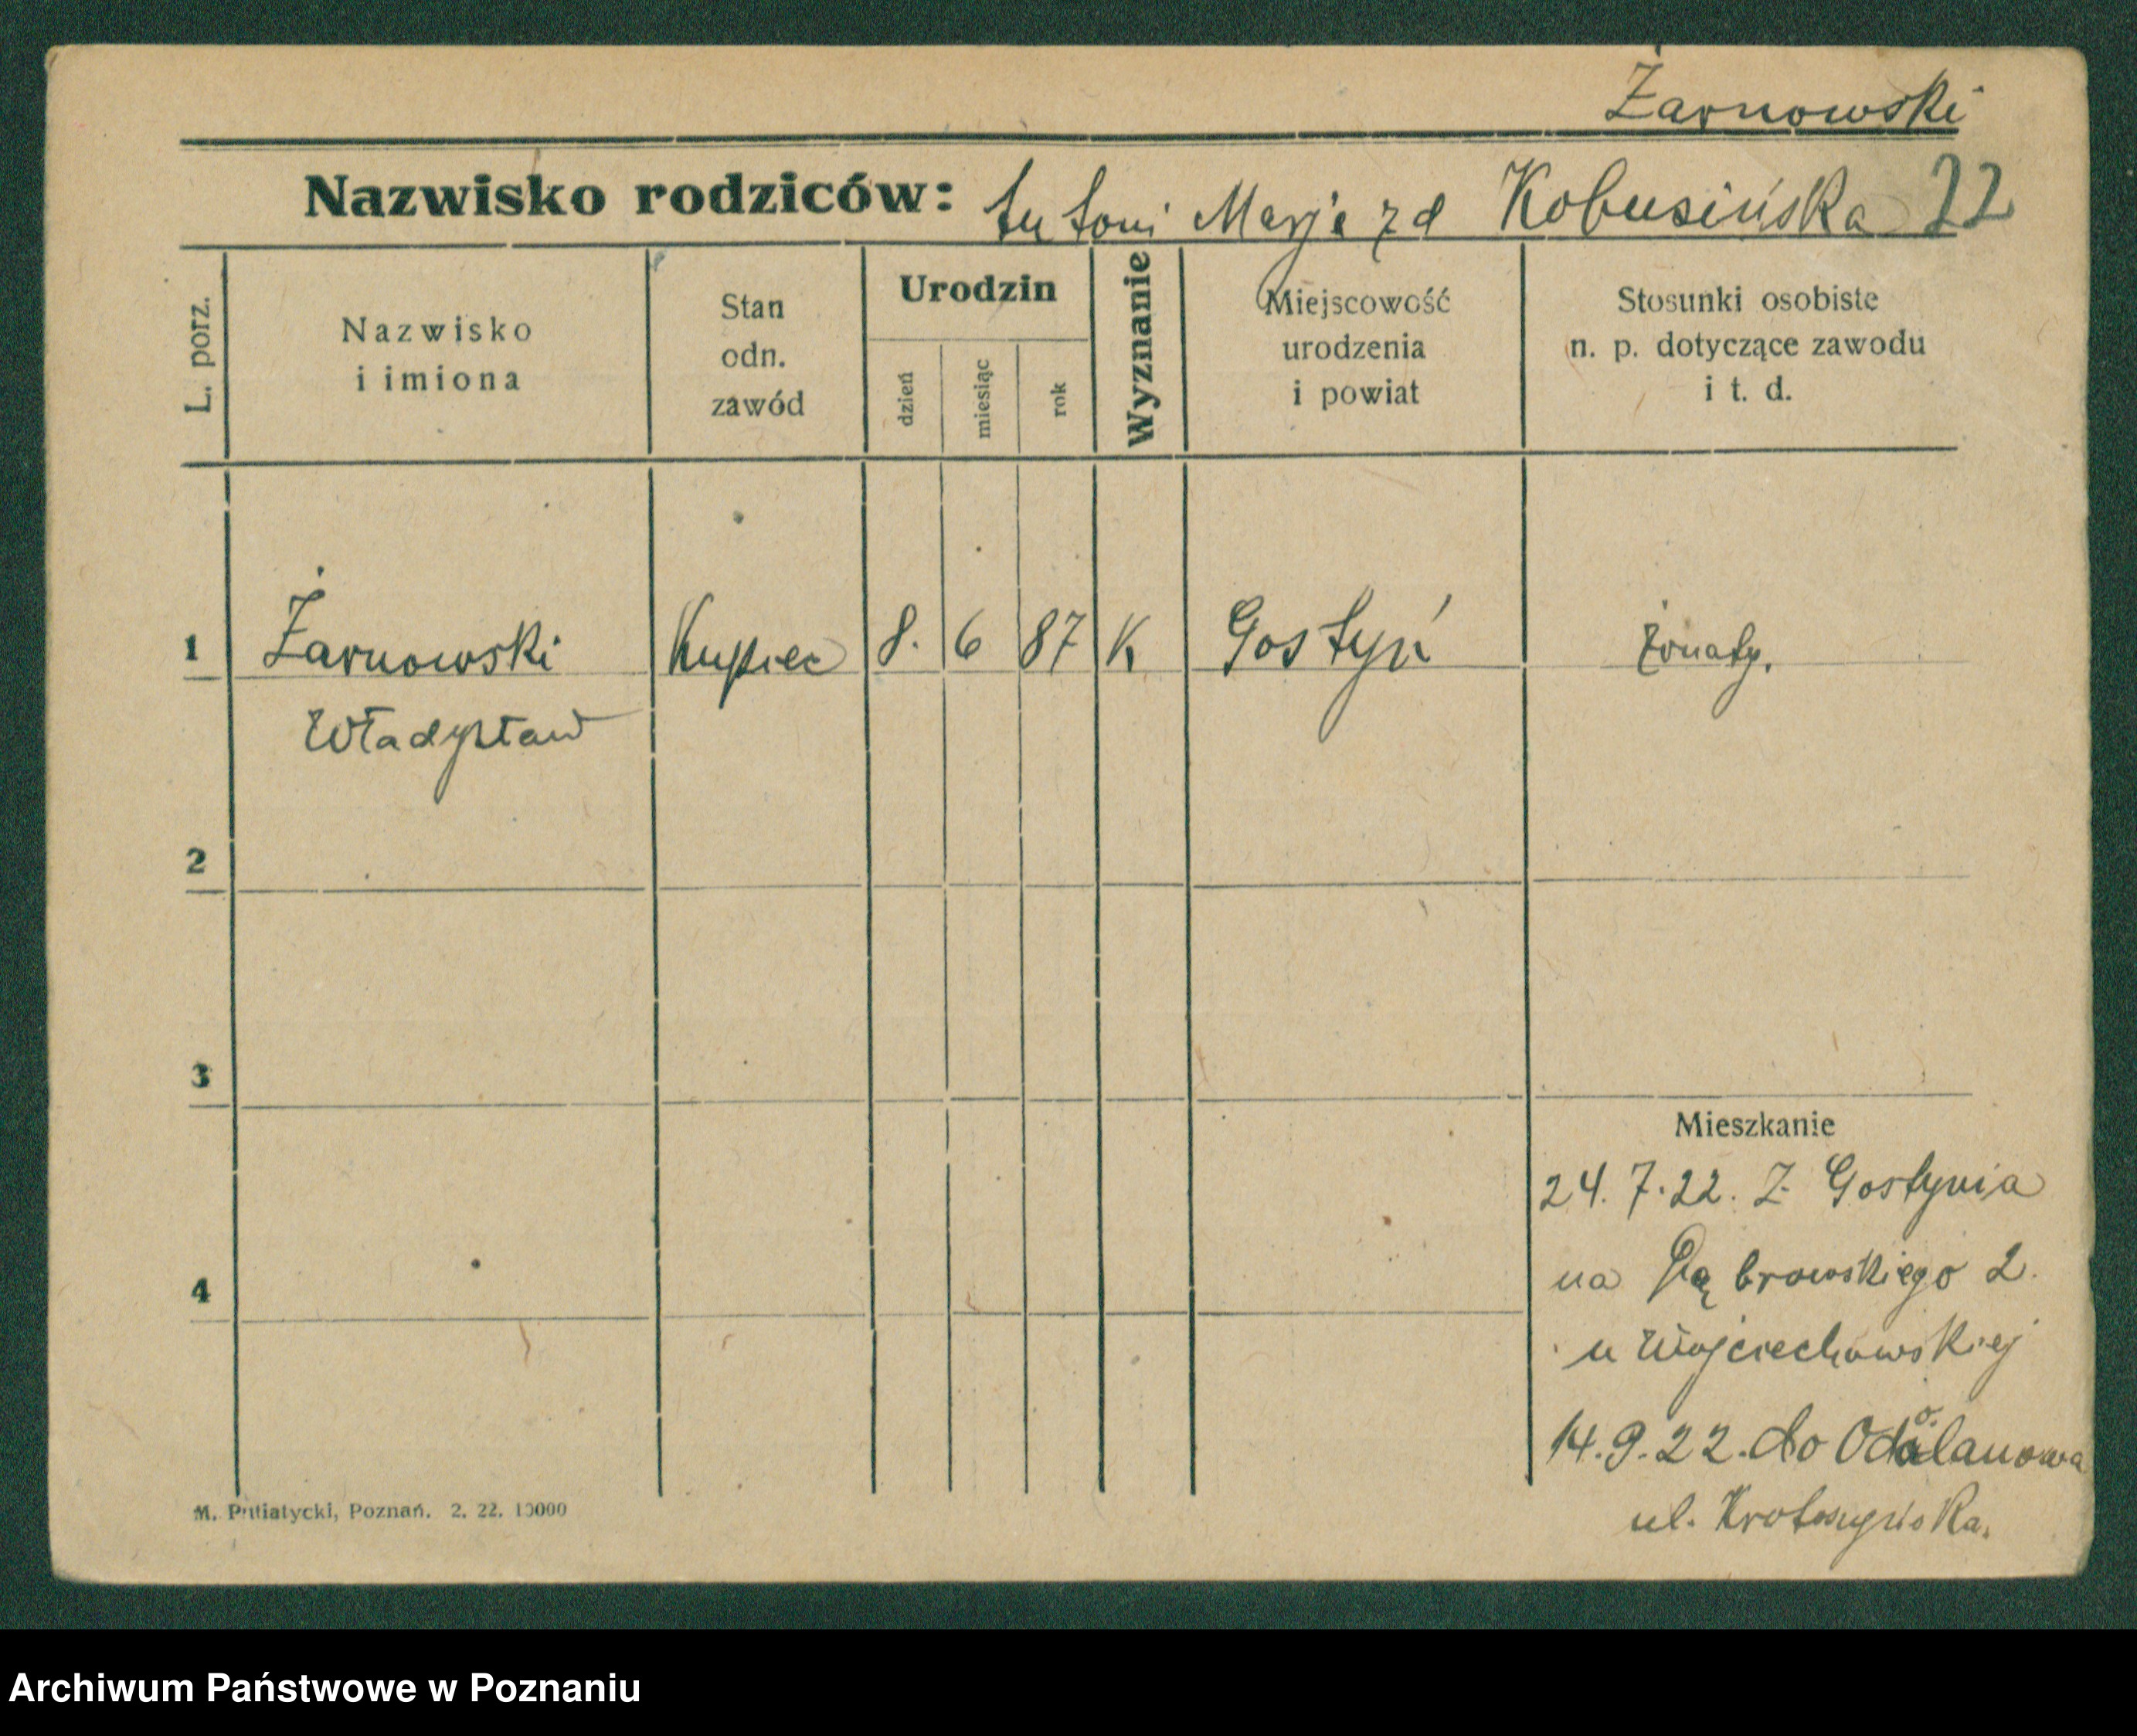 Żarnowski
Nazwisko rodziców: Antoni Marja zd Kobusińska 22
L. porz.
Nazwisko
i imiona
Stan
odn.
zawód
Urodzin
dzień
miesiąc
rok
Wyznanie
Miejscowość
urodzenia
i powiat
Stosunki osobiste
n. p. dotyczące zawodu
i t. d.
1 Żarnowski Kupiec 8. 6 87 K Gostyń żonaty.
Władysław
2
3
Mieszkanie
24. 7. 22. Z Gostynia
4
na Dąbrowskiego 2.
u Wojciechowskiej
14. 9. 22. do Odolanowa
ul. Krotoszyńska.
M. Putiatycki, Poznań. 2. 22. 10000
Archiwum Państwowe w Poznaniu